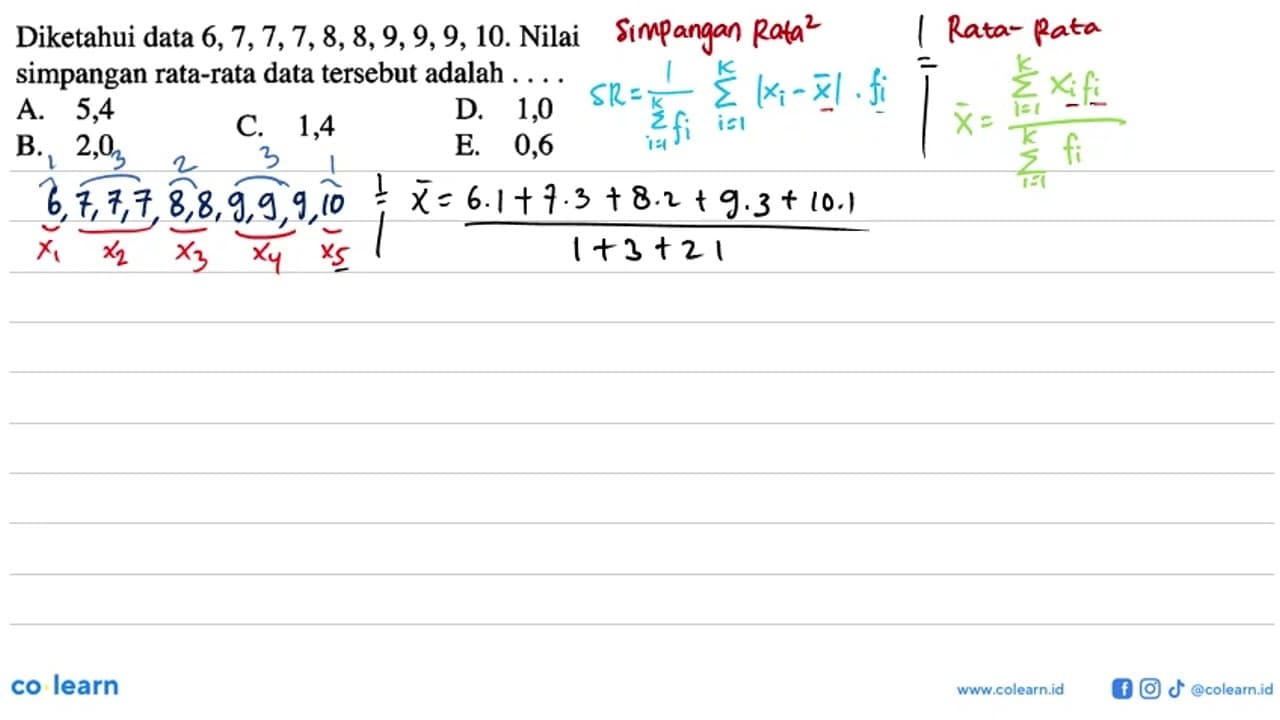 Diketahui data 6, 7, 7, 7, 8, 8, 9, 9, 9, 10. Nilai
simpangan rata-rata data tersebut adalah . . . .
A. 5,4
B. 2,0
C. 1,4
D. 1,0
E. 0,6
Simpangan Rata²
SR = 1/(k Σ i=1 fi) k Σ i=1 |xi - x̄| . fi
Rata-Rata
x̄ = (k Σ i=1 xi fi)/(k Σ i=1 fi)
1 3 2 3 1
6, 7, 7, 7, 8, 8, 9, 9, 9, 10
x1 x2 x3 x4 x5
x̄ = 6.1 + 7.3 + 8.2 + 9.3 + 10.1
1 + 3 + 2 1
co learn
www.colearn.id
@colearn.id